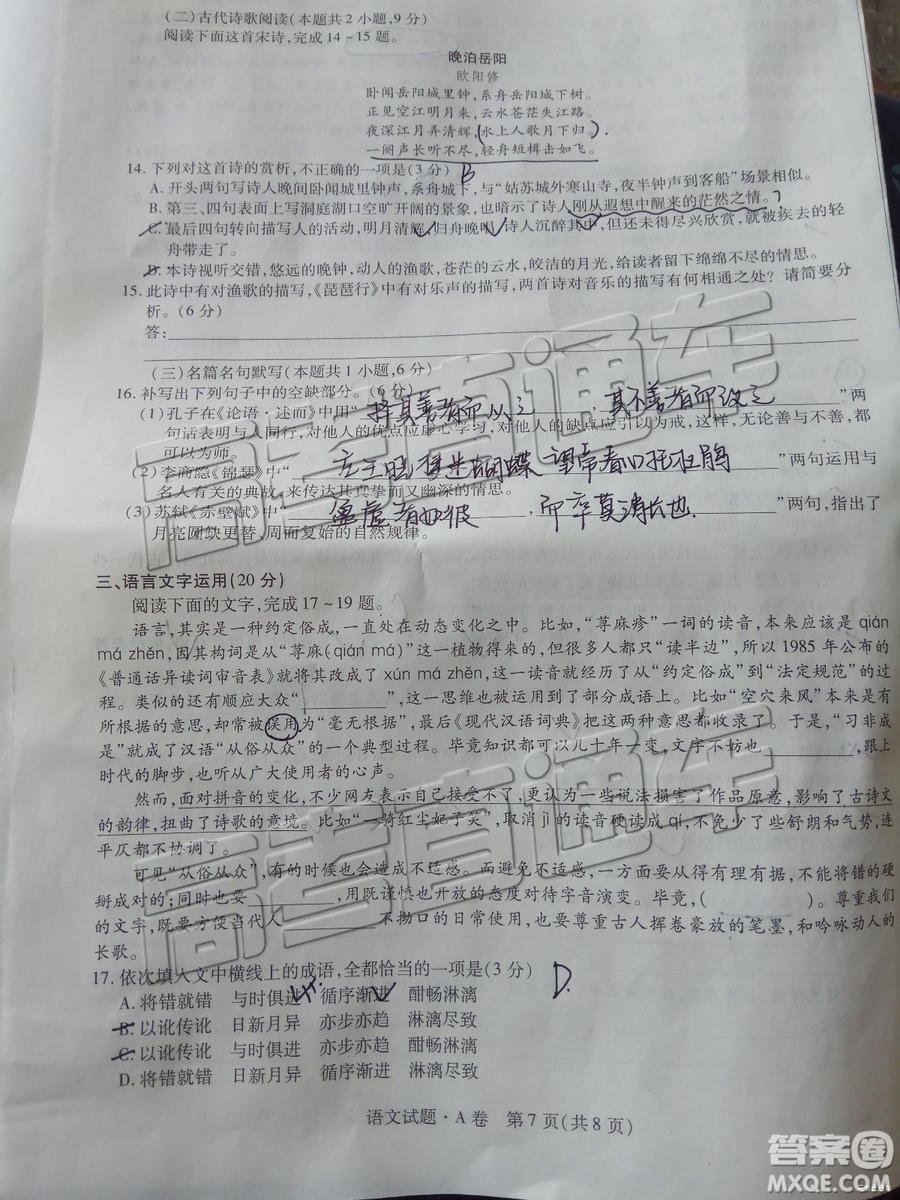 (二)古代诗歌阅读(本题共2小题,9分)
阅读下面这首宋诗,完成14~15题。
晚泊岳阳
欧阳修
卧闻岳阳城里钟,系舟岳阳城下树。
正见空江明月来,云水苍茫失江路。
夜深江月弄清辉,(水上人歌月下归。)
一阕声长听不尽,轻舟短楫击如飞。
14. 下列对这首诗的赏析,不正确的一项是(3分) B
A. 开头两句写诗人晚间卧闻城里钟声,系舟城下,与“姑苏城外寒山寺,夜半钟声到客船”场景相似。
B. 第三、四句表面上写洞庭湖口空旷开阔的景象,也暗示了诗人刚从遐想中醒来的茫然之情。?
C. 最后四句转向描写人的活动,明月清辉,归舟晚唱,诗人沉醉其中,但还未得尽兴欣赏,就被疾去的轻
舟带走了。
D. 本诗视听交错,悠远的晚钟,动人的渔歌,苍茫的云水,皎洁的月光,给读者留下绵绵不尽的情思。
15. 此诗中有对渔歌的描写,《琵琶行》中有对乐声的描写,两首诗对音乐的描写有何相通之处?请简要分
析。(6分)
答:
(三)名篇名句默写(本题共1小题,6分)
16. 补写出下列句子中的空缺部分。(6分)
(1)孔子在《论语·述而》中用“择其善者而从之,其不善者而改之”两
句话表明与人同行,对他人的优点应虚心学习,对他人的缺点应引以为戒,这样,无论善与不善,都
可以为师。
(2)李商隐《锦瑟》中“庄生晓梦迷蝴蝶 望帝春心托杜鹃”两句运用与
名人有关的典故,来传达其真挚而又幽深的情思。
(3)苏轼《赤壁赋》中“盈虚者如彼,而卒莫消长也”两句,指出了
月亮圆缺更替,周而复始的自然规律。
三、语言文字运用(20分)
阅读下面的文字,完成17~19题。
语言,其实是一种约定俗成,一直处在动态变化之中。比如,“荨麻疹”一词的读音,本来应该是 qián
má zhěn,因其构词是从“荨麻(qián má)”这一植物得来的,但很多人都只“读半边”,所以1985年公布的
《普通话异读词审音表》就将其改成了 xún má zhěn,这一读音就经历了从“约定俗成”到“法定规范”的过
程。类似的还有顺应大众“________”,这一思维也被运用到了部分成语上。比如“空穴来风”本来是有
所根据的意思,却常被误用为“毫无根据”,最后《现代汉语词典》把这两种意思都收录了。于是,“习非成
是”就成了汉语“从俗从众”的一个典型过程。毕竟知识都可以几十年一变,文字不妨也________,跟上
时代的脚步,也听从广大使用者的心声。
然而,面对拼音的变化,不少网友表示自己接受不了,更认为一些说法损害了作品原意,影响了古诗文
的韵律,扭曲了诗歌的意境。比如“一骑红尘妃子笑”,取消 jì 的读音硬读成 qí,不免少了些舒朗和气势,连
平仄都不协调了。
可见“从俗从众”,有的时候也会造成不适感。而避免不适感,一方面要从得有理有据,不能将错的硬
掰成对的;同时也要________,用既谨慎也开放的态度对待字音演变。毕竟,(        )。尊重我们
的文字,既要方便当代人________不拗口的日常使用,也要尊重古人挥卷豪放的笔墨,和吟咏动人的
长歌。
17. 依次填入文中横线上的成语,全都恰当的一项是(3分) D.
A. 将错就错 与时俱进 循序渐进 酣畅淋漓
B. 以讹传讹 日新月异 亦步亦趋 淋漓尽致
C. 以讹传讹 与时俱进 亦步亦趋 酣畅淋漓
D. 将错就错 日新月异 循序渐进 淋漓尽致
语文试题·A卷 第7页(共8页)
高考直通车
高考直通车
答案圈
MXQE.COM